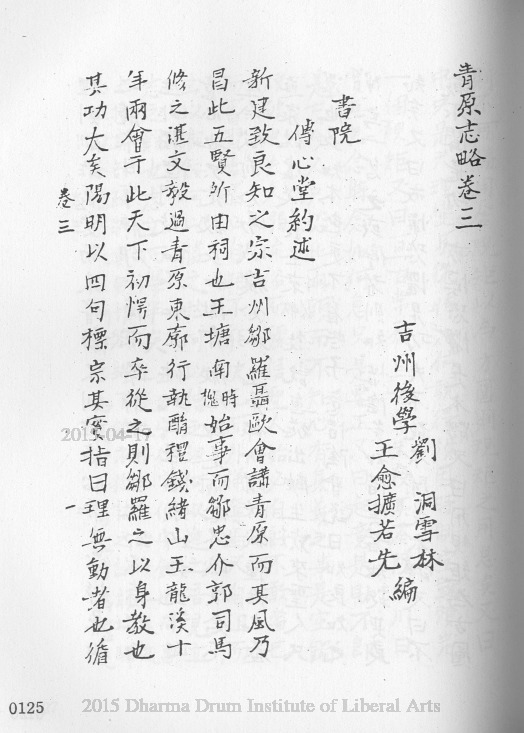 青原志略卷三
吉州後學劉洞雪林
王愈擴若先編
書院
傳心堂約述
新建致良知之宗吉州鄒羅聶歐會講青原而其風乃
昌此五賢所由祠也王塘南時槐始事而鄒忠介郭司馬
修之湛文毅過青原東廓行執醬禮錢緒山王龍溪十
年兩會于此天下初愕而卒從之則鄒羅之以身教也
其功大矣陽明以四句標宗其實指曰理無動者也循
卷三
一
2015-04-17
0125
2015 Dharma Drum Institute of Liberal Arts